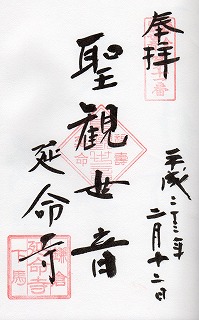 奉拝
平成二十三年
二月十二日
聖観世音
延命寺
鎌倉
延命寺